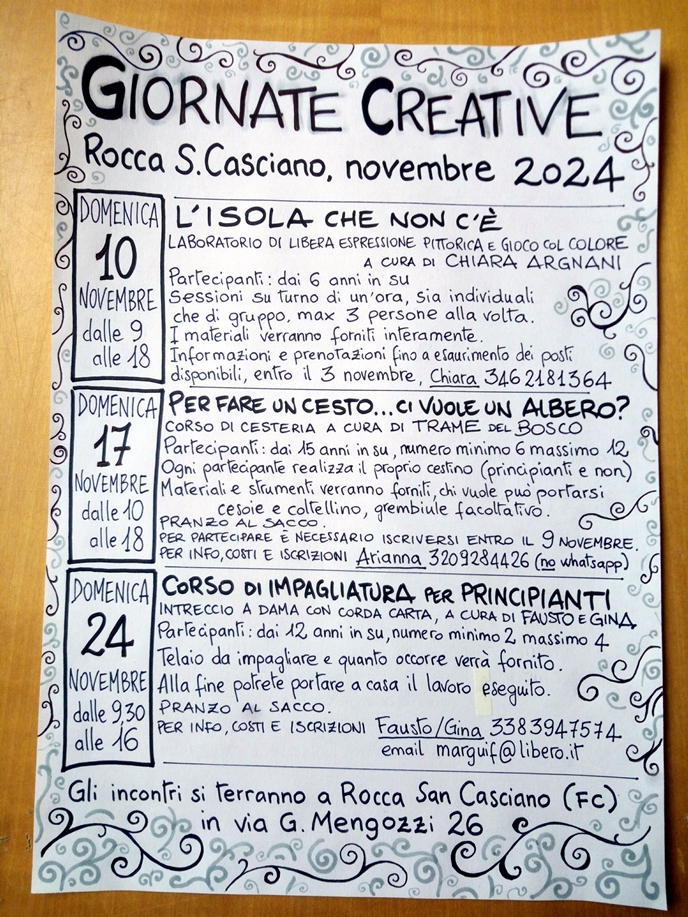 GIORNATE CREATIVE
Rocca S. Casciano, novembre 2024
DOMENICA
10
NOVEMBRE
dalle 9
alle 18
L'ISOLA CHE NON C'È
LABORATORIO DI LIBERA ESPRESSIONE PITTORICA E GIOCO COL COLORE
A CURA DI CHIARA ARGNANI
Partecipanti: dai 6 anni in su
Sessioni su turno di un'ora, sia individuali
che di gruppo, max 3 persone alla volta.
I materiali verranno forniti interamente.
Informazioni e prenotazioni fino a esaurimento dei posti
disponibili, entro il 3 novembre, Chiara 3462181364
DOMENICA
17
NOVEMBRE
dalle 10
alle 18
PER FARE UN CESTO...CI VUOLE UN ALBERO?
CORSO DI CESTERIA A CURA DI TRAME DEL BOSCO
Partecipanti: dai 15 anni in su, numero minimo 6 massimo 12
Ogni partecipante realizza il proprio cestino (principianti e non)
Materiali e strumenti verranno forniti, chi vuole può portarsi
cesoie e coltellino, grembiule facoltativo.
PRANZO AL SACCO.
PER PARTECIPARE È NECESSARIO ISCRIVERSI ENTRO IL 9 NOVEMBRE.
PER INFO, COSTI E ISCRIZIONI Arianna 3209284426 (no whatsapp)
DOMENICA
24
NOVEMBRE
dalle 9,30
alle 16
CORSO DI IMPAGLIATURA PER PRINCIPIANTI
INTRECCIO A DAMA CON CORDA CARTA, A CURA DI FAUSTO E GINA
Partecipanti: dai 12 anni in su, numero minimo 2 massimo 4
Telaio da impagliare e quanto occorre verrà fornito.
Alla fine potrete portare a casa il lavoro eseguito.
PRANZO AL SACCO.
PER INFO, COSTI E ISCRIZIONI Fausto/Gina 3383947574
email marguif@libero.it
Gli incontri si terranno a Rocca San Casciano (FC)
in via G. Mengozzi 26